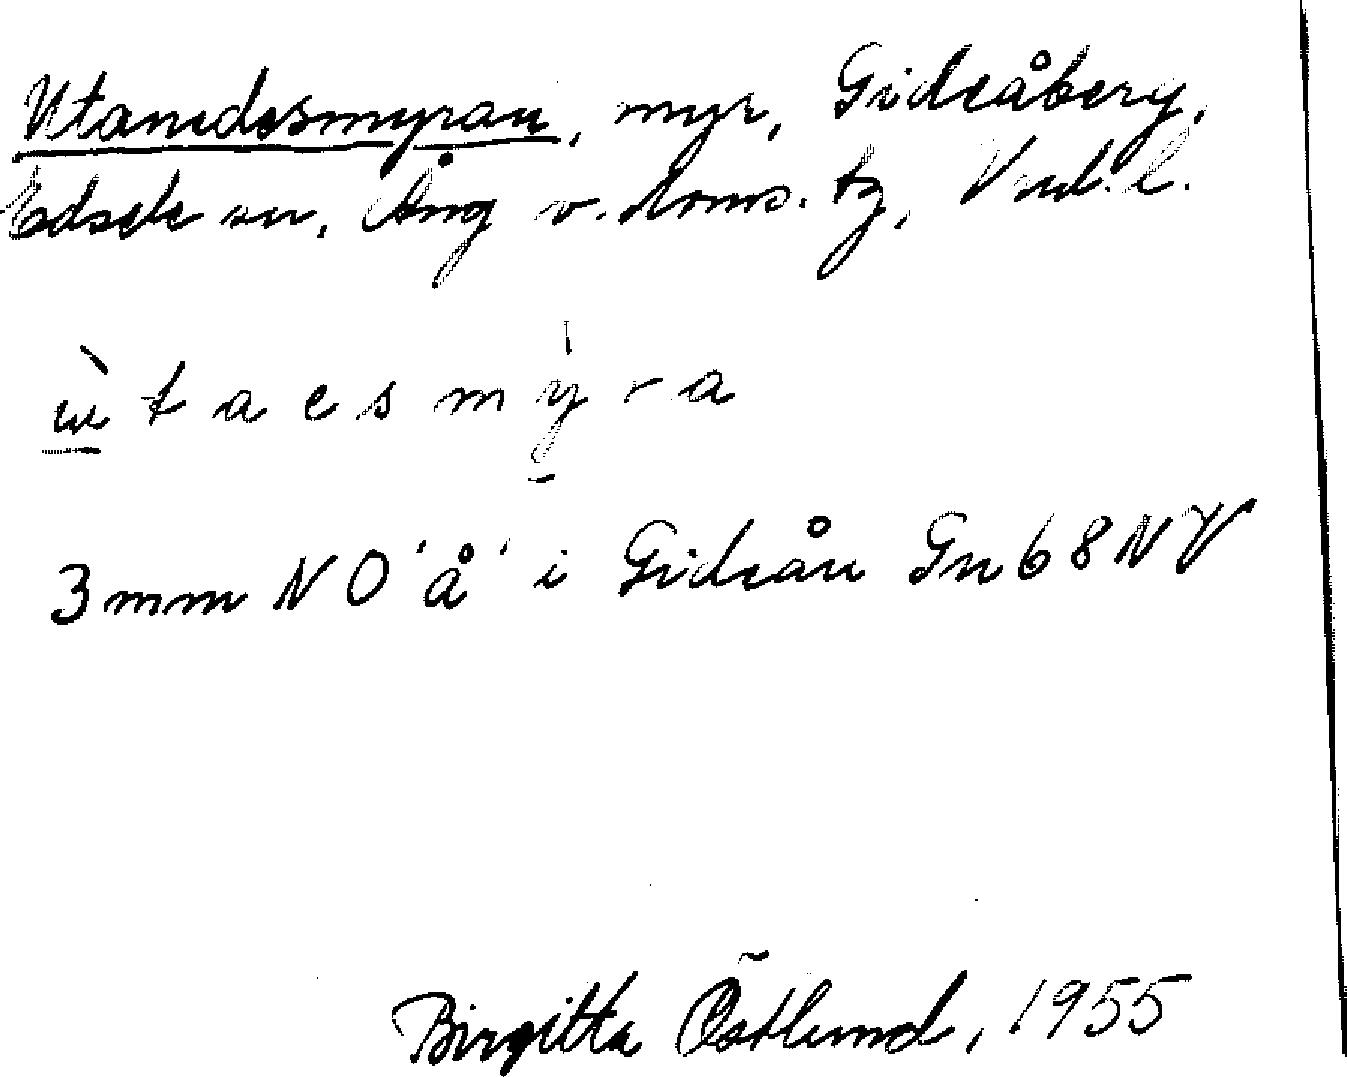 Utanedesmyran, myr, Gideåberg,
Edsele sn, Ång v. doms. tg, Vnl. l.
ù t a e s m y r a
3 mm NO 'å' i Gideån Gn 68 NV
Birgitta Östlund, 1955